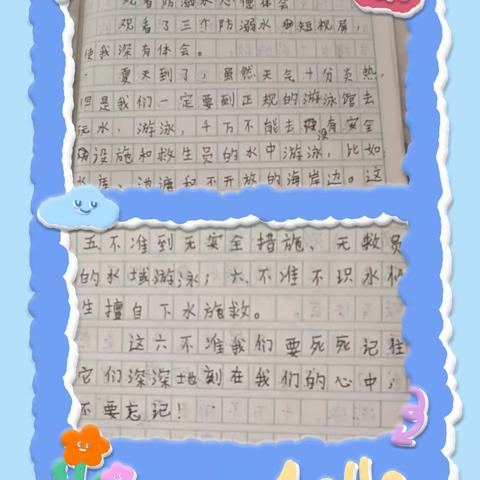 观看防溺水心得体会
观看了三个防溺水的短视屏,
使我深有体会。
夏天到了,虽然天气十分炎热,
但是我们一定要到正规的游泳馆去
玩水、游泳,千万不能去没有安全
设施和救生员的水中游泳,比如
水库、池塘和不开放的海岸边。这
五不准到无安全措施、无救员
的水域游泳;六、不准不识水性
生擅自下水施救。
这六不准我们要死死记住
它们深深地刻在我们的心中,
不要忘记!